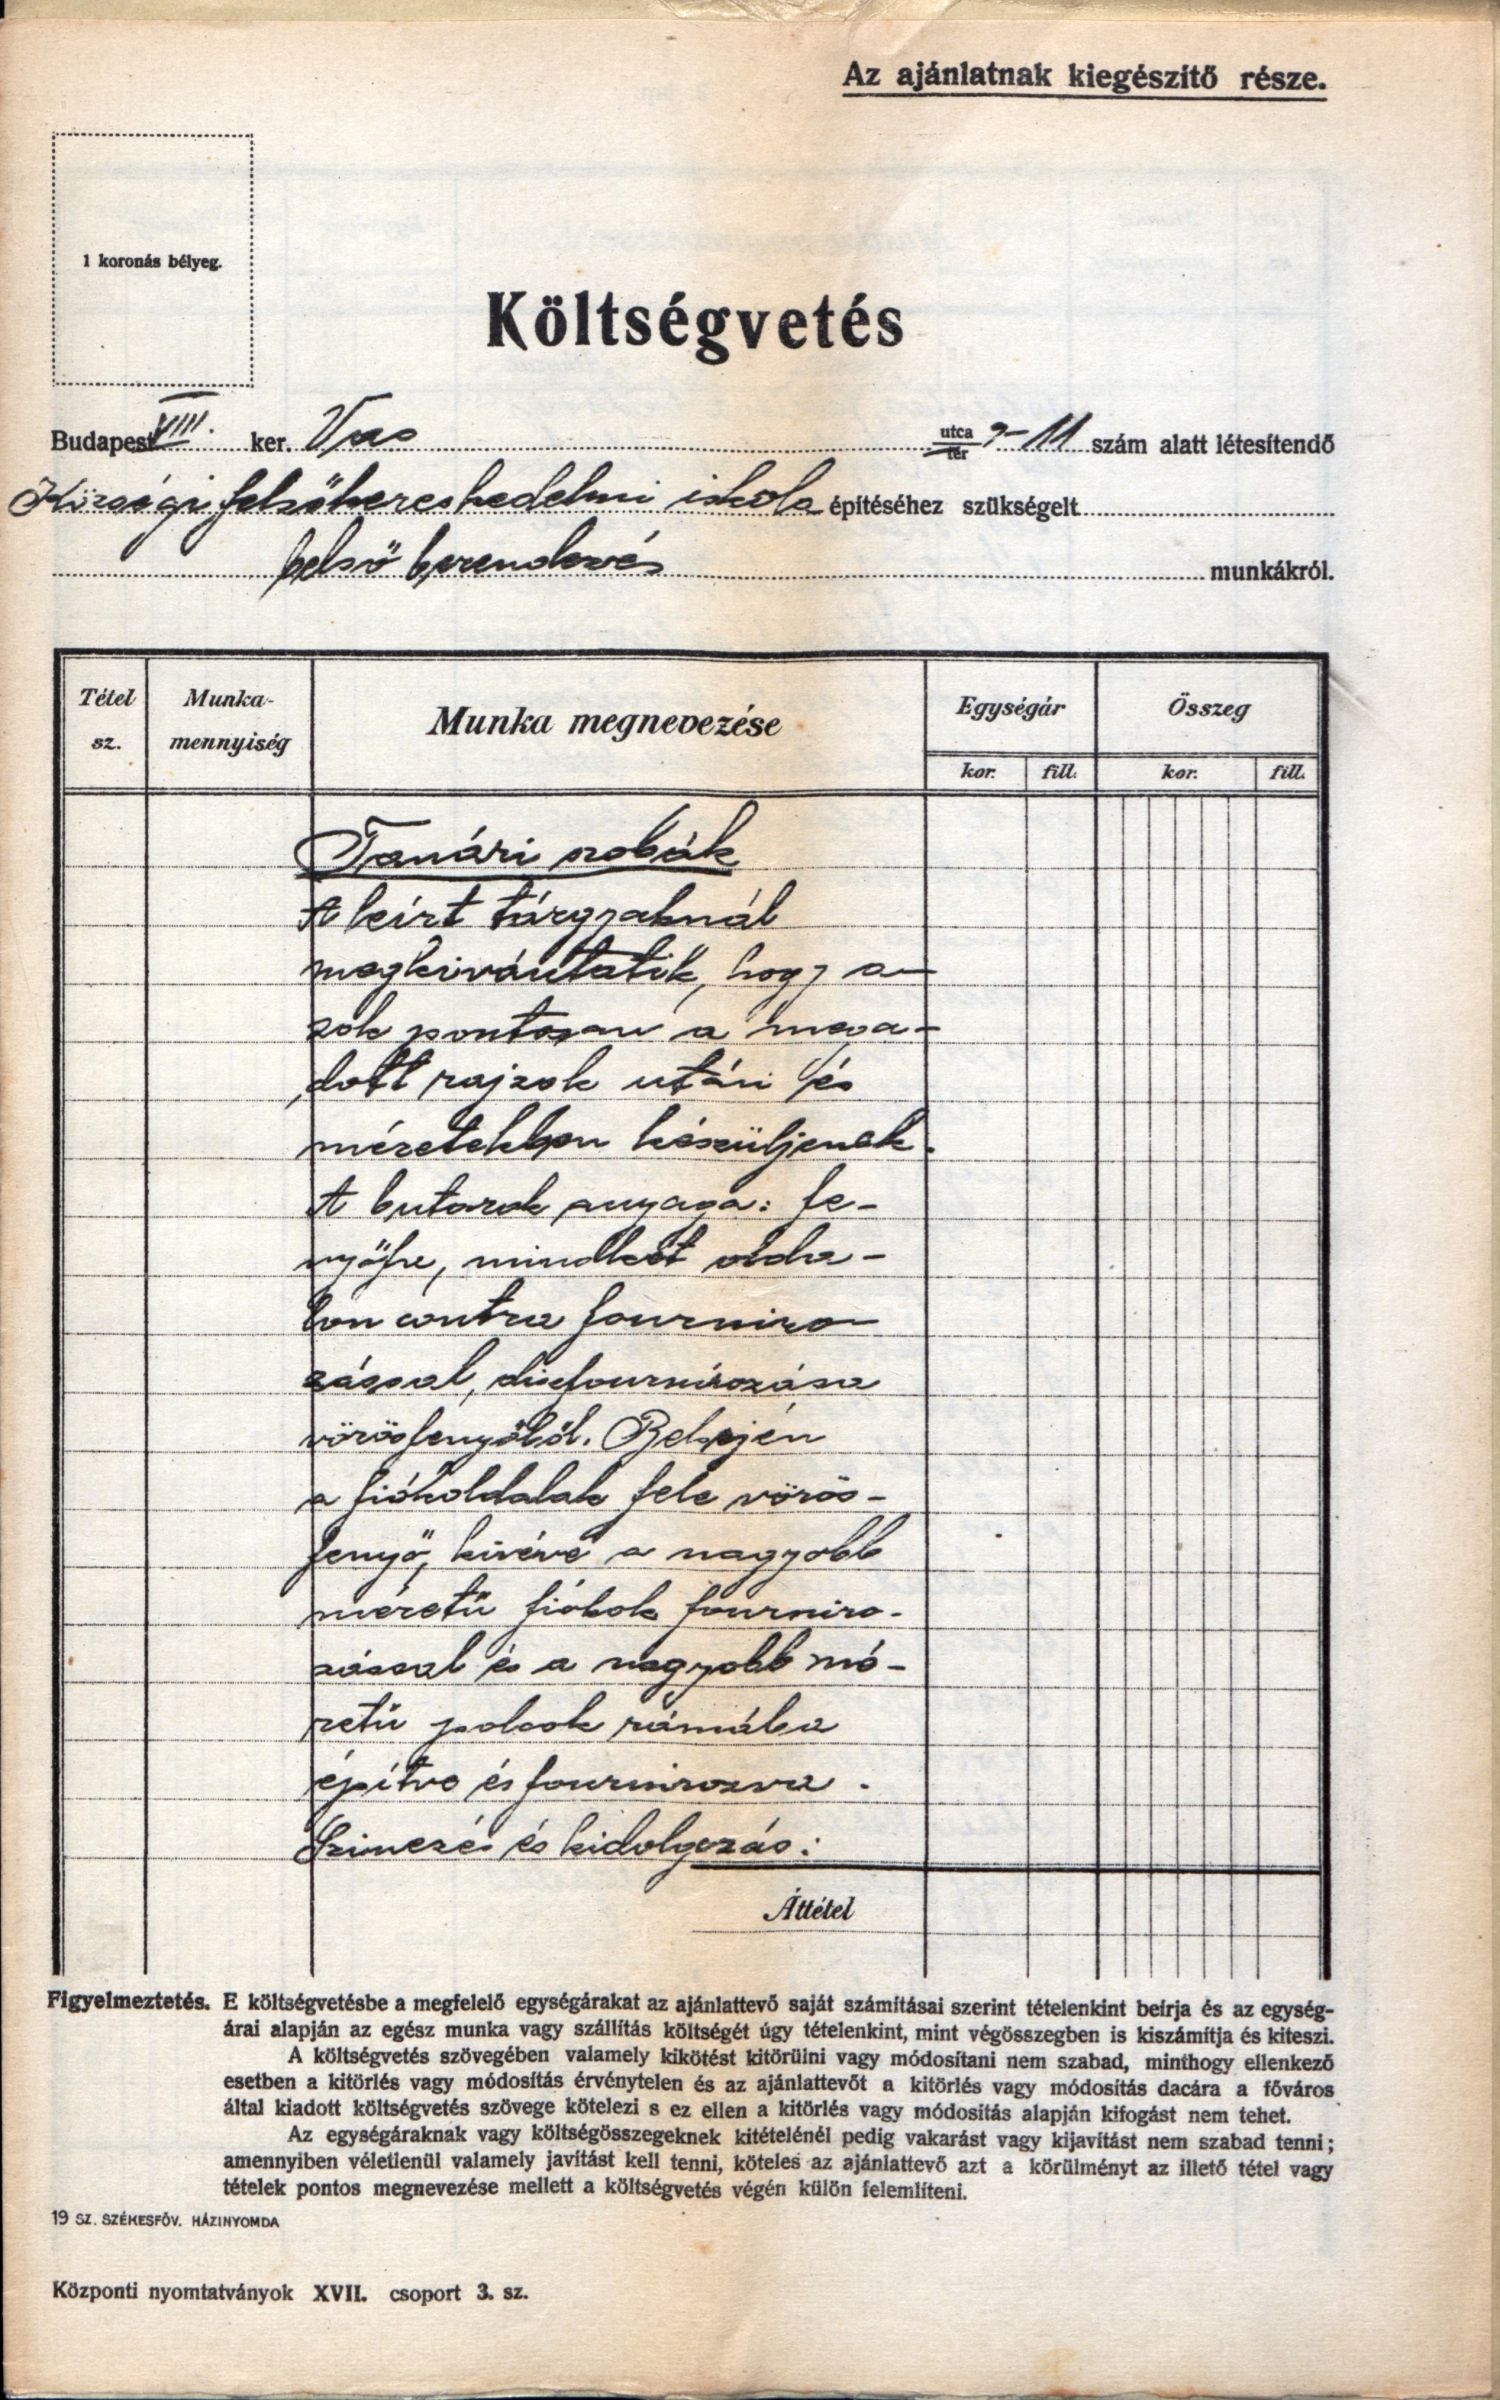 Az ajánlatnak kiegészítő része.
1 koronás bélyeg.
Költségvetés
Budapest VIII. ker. Vas utca/tér 9-11 szám alatt létesítendő
Községi felsőkereskedelmi iskola építéséhez szükségelt
belső berendezés munkákról.
Tétel sz. Munka-mennyiség Munka megnevezése Egységár Összeg
kor. fill. kor. fill.
Tanári szobák
A leírt tárgyaknál
megkivántatik, hogy a-
zok pontosan a mega-
dott rajzok után és
méretekben készüljenek.
A butorok anyaga: fe-
nyőfa, mindkét olda-
lon contra fourniro-
zással, diszfournirozása
vörösfenyőből. Belsején
a fiókoldalak fele vörös-
fenyő, kivéve a nagyobb
méretű fiókok fourniro-
zással és a nagyobb mé-
retű polcok rámába
építve és fournirozva.
Szinezés és kidolgozás:
Áttétel
Figyelmeztetés. E költségvetésbe a megfelelő egységárakat az ajánlattevő saját számításai szerint tételenkint beírja és az egység-
árai alapján az egész munka vagy szállítás költségét úgy tételenkint, mint végösszegben is kiszámítja és kiteszi.
A költségvetés szövegében valamely kikötést kitörülni vagy módosítani nem szabad, minthogy ellenkező
esetben a kitörlés vagy módosítás érvénytelen és az ajánlattevőt a kitörlés vagy módosítás dacára a főváros
által kiadott költségvetés szövege kötelezi s ez ellen a kitörlés vagy módosítás alapján kifogást nem tehet.
Az egységáraknak vagy költségösszegeknek kitételénél pedig vakarást vagy kijavítást nem szabad tenni;
amennyiben véletlenül valamely javítást kell tenni, köteles az ajánlattevő azt a körülményt az illető tétel vagy
tételek pontos megnevezése mellett a költségvetés végén külön felemlíteni.
19 SZ. SZÉKESFŐV. HÁZINYOMDA
Központi nyomtatványok XVII. csoport 3. sz.